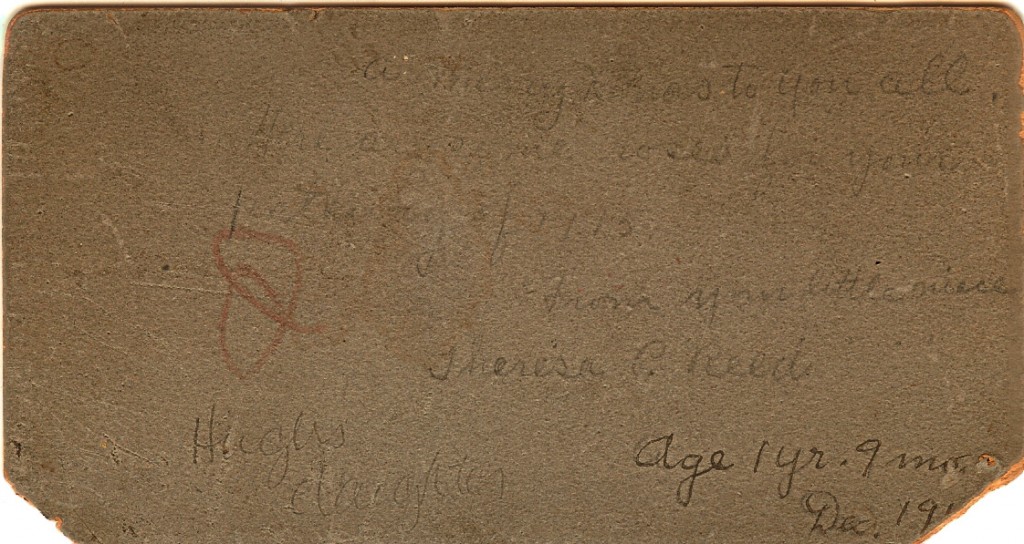 a Merry Xmas to you all.
Here are some roses for you
from your little niece
Theresa C. Reed
Hughs
daughter
Age 1 yr. 9 mo.
Dec. 191